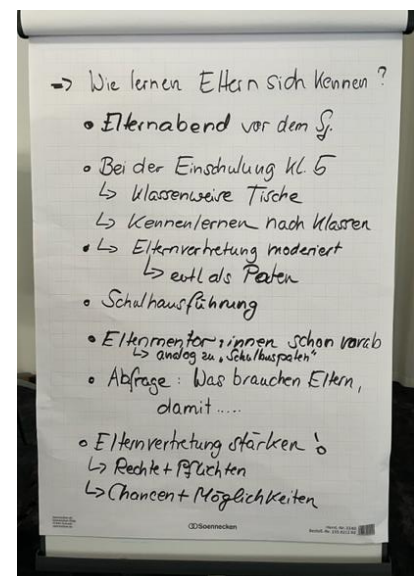 -> Wie lernen Eltern sich kennen?
• Elternabend vor dem Sj.
• Bei der Einschulung Kl. 5
↳ Klassenweise Tische
↳ Kennenlernen nach Klassen
• ↳ Elternvertretung moderiert
↳ evtl als Paten
• Schulhausführung
• Elternmentor:innen schon vorab
↳ analog zu „Schulbuspaten“
• Abfrage: Was brauchen Eltern,
damit.....
• Elternvertretung stärken!
↳ Rechte + Pflichten
↳ Chancen + Möglichkeiten
Soennecken